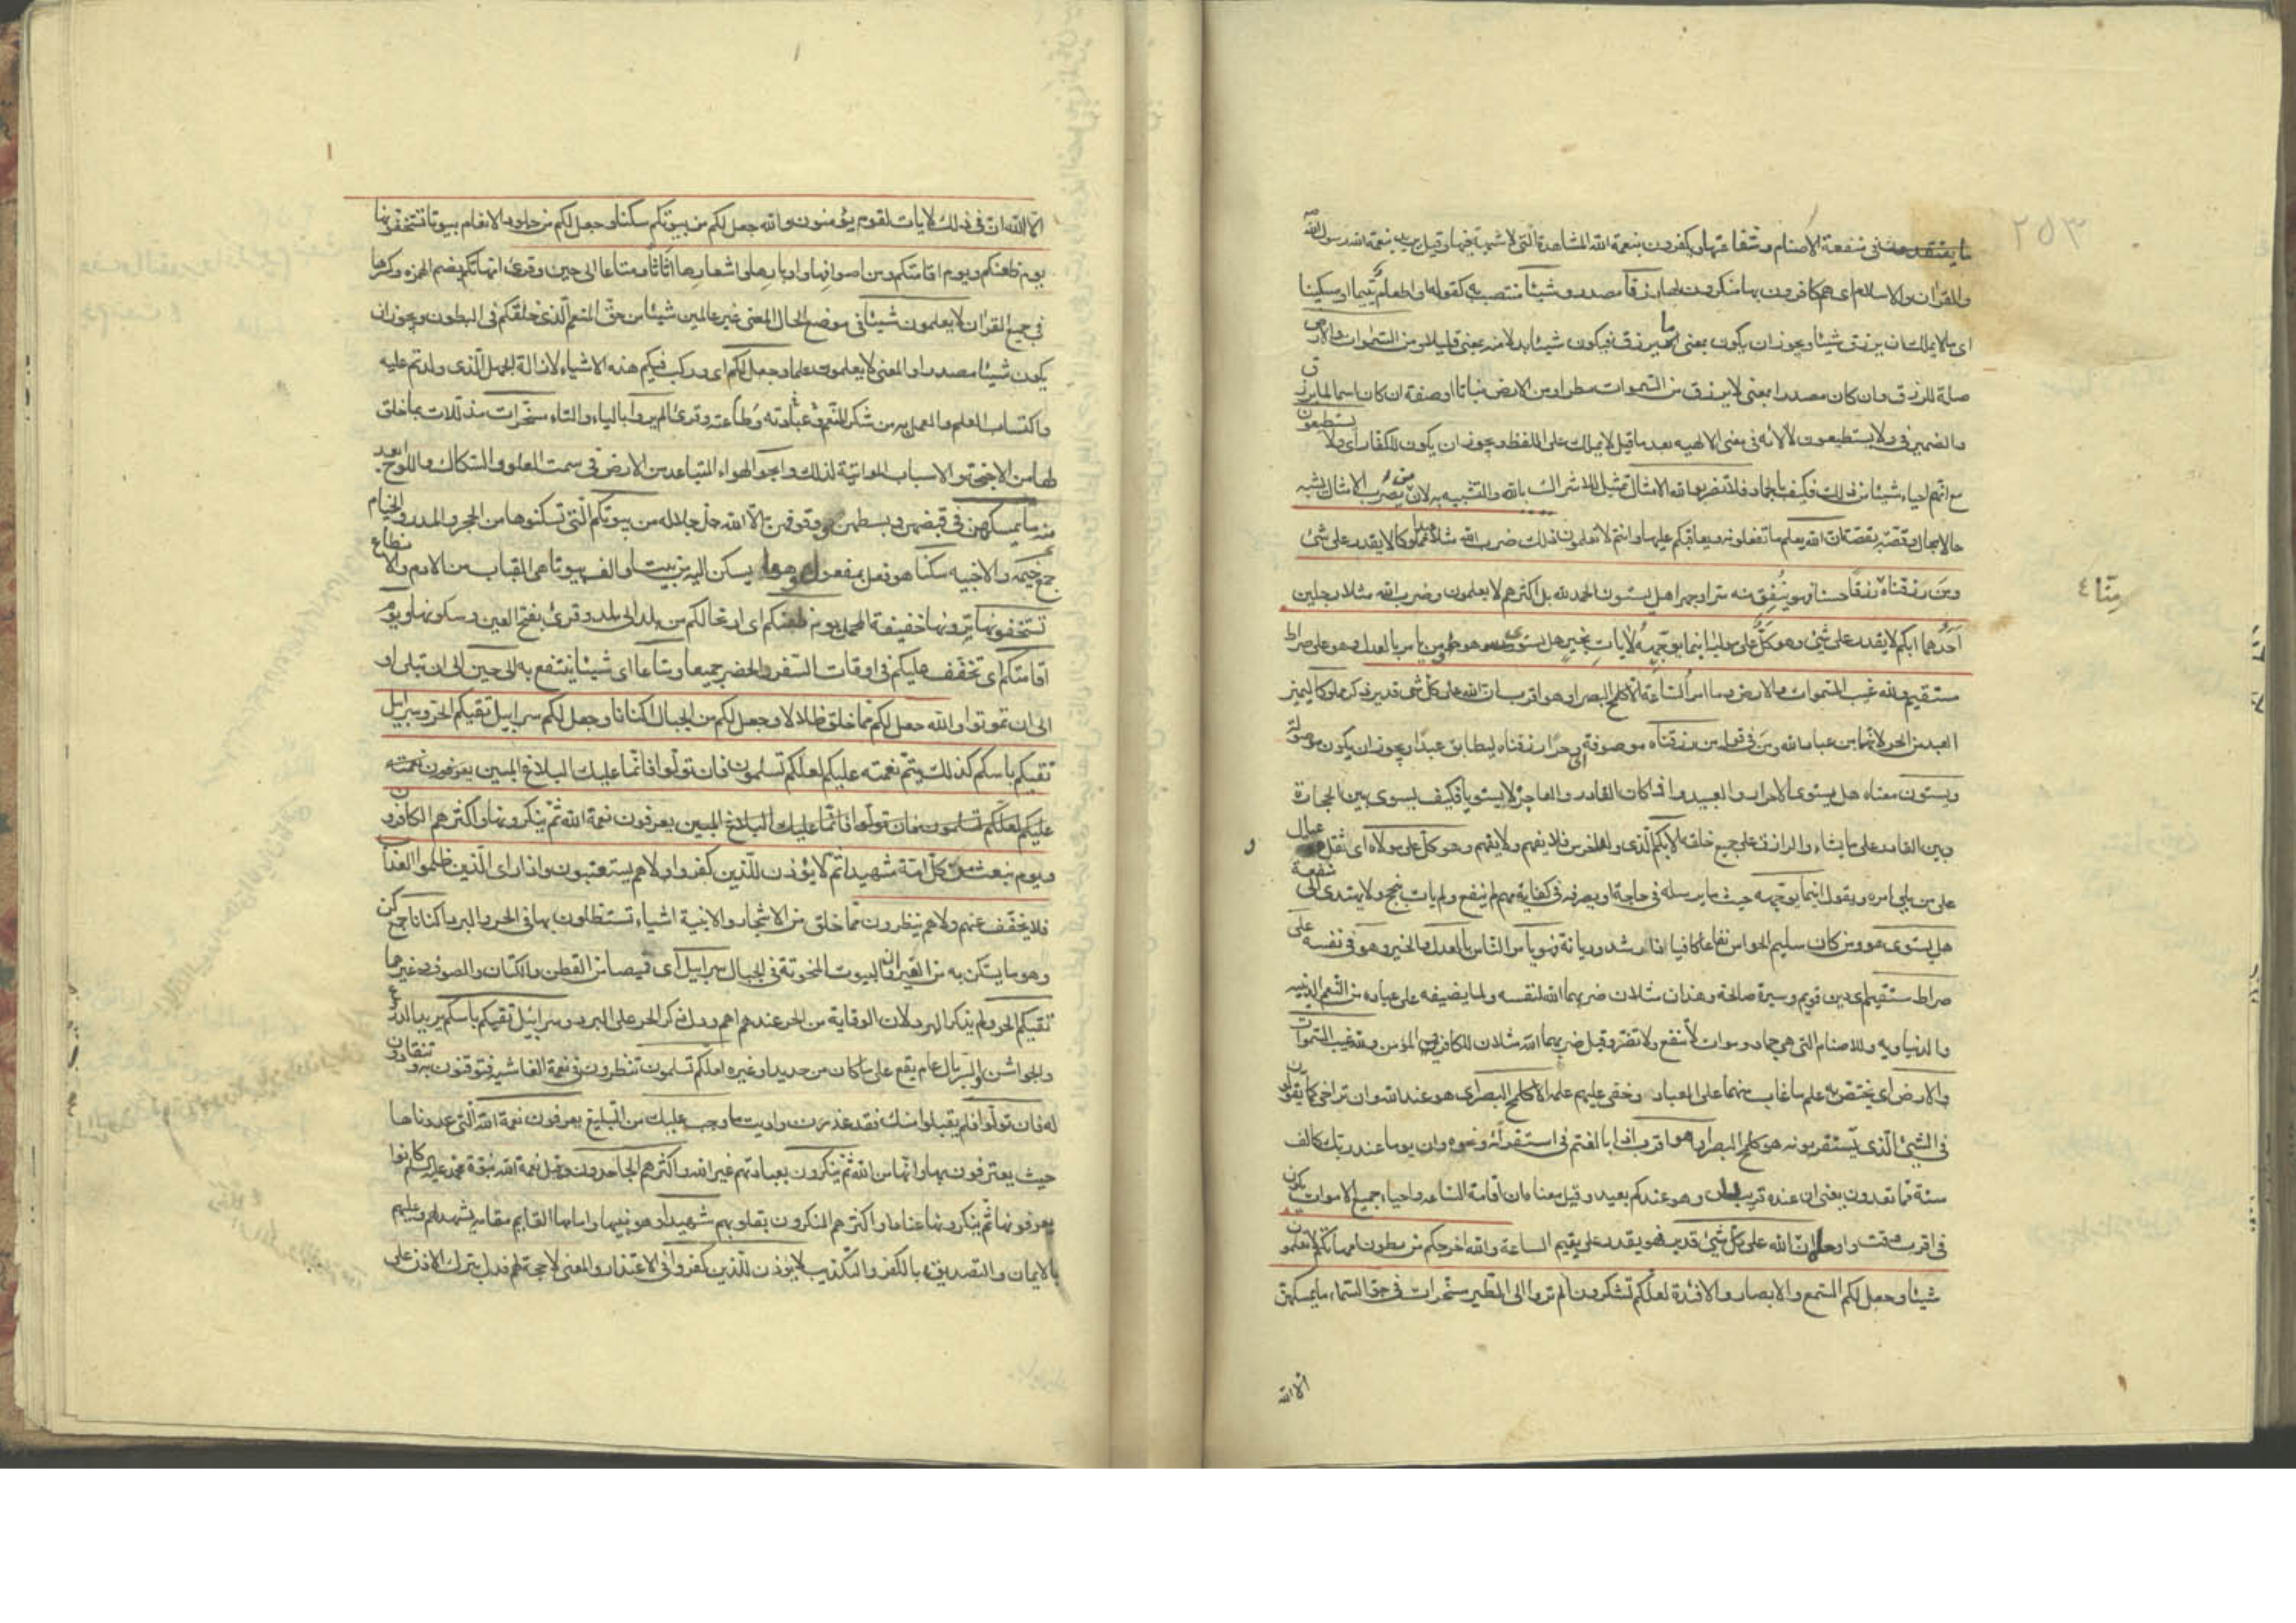 ٢٥٣
ما يعتقدون فى منفعة الاصنام وشفاعتها ويكفرون بنعمة الله المشاهدة التى لا شبهة فيها وقيل يريد بنعمة الله رسول الله ص
والقران والاسلام اى هم كافرون بها منكرون لها رزقا مصدر و شيئا منتصب به كقوله او اطعام يتيما او مسكينا
اى ما لا يملك ان يرزق شيئا ويجوز ان يكون بمعنى ما يرزق فيكون شيئا بدلا منه بمعنى قليلا ومن السموات والارض
صلة للرزق وان كان مصدرا بمعنى لا يرزق من السموات مطرا ومن الارض نباتا او صفة ان كان اسما لما يرزق
والضمير فى ولا يستطيعون لما لانه فى معنى الالهه بعد ما قيل لا يملك على اللفظ ويجوز ان يكون للكفار اى ولا يستطيعون
مع انهم احياء شيئا من ذلك فكيف بالجماد فلا تضربوا لله الامثال تمثيل للاشراك بالله والتشبيه به لان من يضرب الامثال يشبه
حالا بحال وقصة بقصة ان الله يعلم ما تفعلونه ويعاقبكم عليها وانتم لا تعلمون ذلك ضرب الله مثلا عبدا مملوكا لا يقدر على شئ
ومن رزقناه رزقا حسنا فهو ينفق منه سرا وجهرا هل يستون الحمد لله بل اكثرهم لا يعلمون وضرب الله مثلا رجلين
منّا ٤
احدهما ابكم لا يقدر على شئ وهو كلّ على موليه اينما يوجهه لا يات بخير هل يستوى هو ومن يامر بالعدل وهو على صراط
مستقيم ولله غيب السموات والارض وما امر الساعة الا كلمح البصر او هو اقرب ان الله على كل شئ قدير ذكر مملوكا ليميز
العبد من الحر لانهما من عباد الله ومن فى قوله من رزقناه موصوفة اى وحرا رزقناه ليطابق عبدا ويجوز ان يكون موصولة
ويستون معناه هل يستوى الاحرار والعبيد واذا كان القادر والعاجز لا يستويا فكيف يسوى بين الحجارة
وبين القادر على ما يشاء والرازق على جميع خلقه الابكم الذى ولد اخرس فلا يفهم ولا يفهم وهو كل على مولاه اى ثقل وعيال
على من يلى امره ويقول اينما يوجهه حيث ما يرسله فى حاجة او يصرفه فى كفاية مهم لم ينفع ولم يات بنجح ولا يهتدى الى منفعة
هل يستوى هو ومن كان سليم الحواس نفاعا كافيا ذا رشد وديانة فهو يأمر الناس بالعدل والخير وهو فى نفسه على
صراط مستقيم اى دين قويم وسيرة صالحة وهذان مثلان ضربهما الله لنفسه ولما يفيضه على عباده من النعم الدينية
والدنياوية وللاصنام التى هى جماد وموات لا تنفع ولا تضر وقيل ضربهما الله مثلان للكافر والمؤمن ولله غيب السموات
والارض اى يختص به علم ما غاب عنهما على العباد وخفى عليهم علمه الا كلمح البصر اى هو عند الله وان تراخى كما يقولون
فى الشئ الذى يستقربونه هو كلمح البصر او هو اقرب اذا بالغتم فى استقرابه ونحوه وان يوما عند ربك كالف
سنة مما تعدون يعنى ان عنده قريب وهو عندكم بعيد وقيل معناه ان اقامة الساعة واحياء جميع الاموات يكون
فى اقرب وقت واوحاه ان الله على كل شئ قدير فهو يقدر على يقيم الساعة والله اخرجكم من بطون امهاتكم لا تعلمون
شيئا وجعل لكم السمع والابصار والافئدة لعلكم تشكرون الم تروا الى الطير مسخرات فى جو السماء ما يمسكهن
الا الله
الا الله ان فى ذلك لايات لقوم يؤمنون والله جعل لكم من بيوتكم سكنا وجعل لكم من جلود الانعام بيوتا تستخفونها
يوم ظعنكم ويوم اقامتكم ومن اصوافها واوبارها واشعارها اثاثا ومتاعا الى حين وقرئ امهاتكم بضم الهمزه وكسرها
فى جميع القران لا يعلمون شيئا فى موضع الحال المعنى غير عالمين شيئا من حق المنعم الذى خلقكم فى البطون ويجوز ان
يكون شيئا مصدرا والمعنى لا يعلمون علما وجعل لكم اى وركب فيكم هذه الاشياء لازالة الجهل الذى ولدتم عليه
واكتساب العلم والعمل به من شكر المنعم وعبادته وطاعته وقرئ الم يروا بالياء والتاء مسخرات مذللات بما خلق
لها من الاجنحة والاسباب المواتية لذلك والجو الهواء المتباعد من الارض فى سمت العلو والسكاك واللوح ابعد
منه ما يمسكهن فى قبضهن وبسطهن ووقوفهن الا الله جل جلاله من بيوتكم التى تسكنوها من الحجر والمدر والخيام
جمع خيمه والاخبيه سكنا هو فعل بمفعول وهو ما يسكن اليه من بيت او الف بيوتا هى القباب من الادم والانطاع
تستخفونها ترونها خفيفة المحمل يوم ظعنكم اى ارتحالكم من بلد الى بلد وقرئ بفتح العين وسكونها ويوم
اقامتكم اى تخفف عليكم فى اوقات السفر والحضر جميعا ومتاعا اى شيئا ينتفع به الى حين الى ان تبلى او
الى ان تموتوا والله جعل لكم مما خلق ظلالا وجعل لكم من الجبال اكنانا وجعل لكم سرابيل تقيكم الحر وسرابيل
تقيكم باسكم كذلك يتم نعمته عليكم لعلكم تسلمون فان تولوا فانما عليك البلاغ المبين يعرفون نعمته
عليكم لعلكم تسلمون فان تولوا فانما عليك البلاغ المبين يعرفون نعمة الله ثم ينكرونها واكثرهم الكافرون
ويوم نبعث من كل امة شهيدا ثم لا يؤذن للذين كفروا ولا هم يستعتبون واذا راى الذين ظلموا العذاب
فلا يخفف عنهم ولا هم ينظرون مما خلق من الاشجار والابنية اشياء تستظلون بها فى الحر والبرد اكنانا جمع كن
وهو ما يستكن به من الغيران والبيوت المنحوتة فى الجبال سرابيل اى قيصا من القطن والكتان والصوف وغيرها
تقيكم الحر ولم يذكر البرد لان الوقاية من الحر عندهم اهم ودل ذكر الحر على البرد وسرابيل تقيكم باسكم يريد الدروع
والجواشن والسربال عام يقع على ما كان من حديد او غيره لعلكم تسلمون تنظرون فى نعمة الفاشية فتؤمنون به وتنقادون
له فان تولوا فلم يقبلوا منك فقد عذرت واديت ما وجب عليك من التبليغ يعرفون نعمة الله التى عددناها
حيث يعترفون بها وانها من الله ثم ينكرون بعبادتهم غير الله واكثرهم الجاحدون وقيل نعمة الله نبوة محمد عليه السلم كانوا
يعرفونها ثم ينكرونها عنادا واكثرهم المنكرون بقلوبهم شهيدا وهو نبيها وامامها القايم مقامه يشهد لهم وعليهم
بالايمان والتصديق بالكفر والتكذيب لا يؤذن للذين كفروا فى الاعتذار والمعنى لا حجة لهم فدل بترك الاذن على